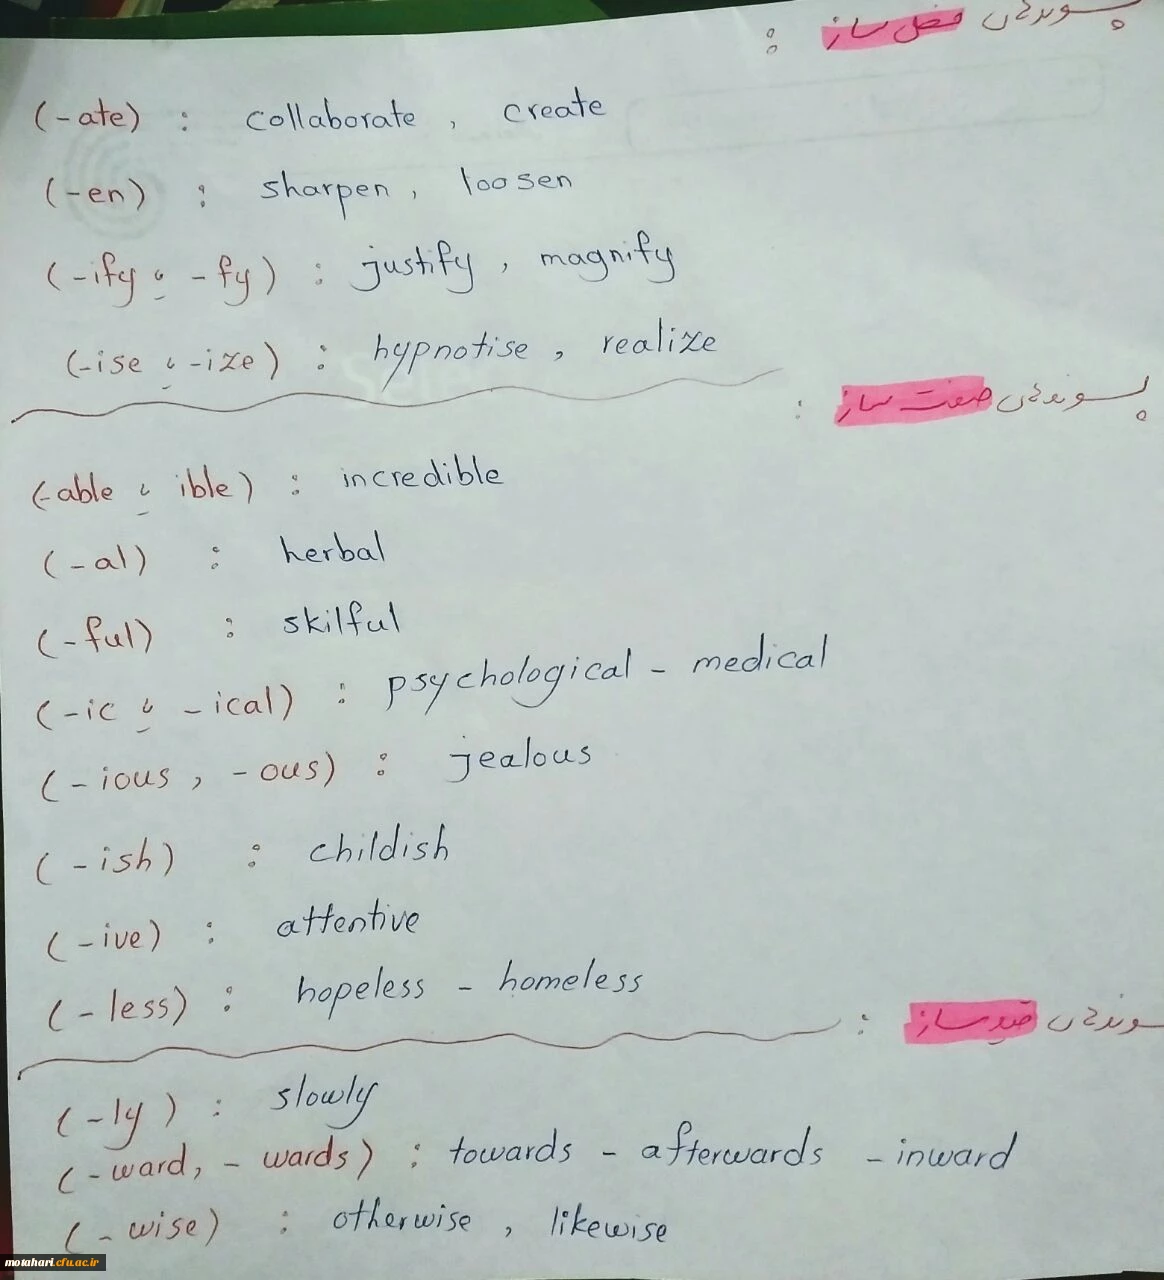 پسوندهای فعل ساز :
(-ate) : collaborate , create
(-en) : sharpen , loosen
(-ify یا -fy) : justify , magnify
(-ise یا -ize) : hypnotise , realize
پسوندهای صفت ساز :
(-able یا ible) : incredible
(-al) : herbal
(-ful) : skilful
(-ic یا -ical) : psychological - medical
(-ious , -ous) : jealous
(-ish) : childish
(-ive) : attentive
(-less) : hopeless - homeless
سوندهای قید ساز :
(-ly) : slowly
(-ward, -wards) : towards - afterwards - inward
(-wise) : otherwise , likewise
motahari.cfu.ac.ir